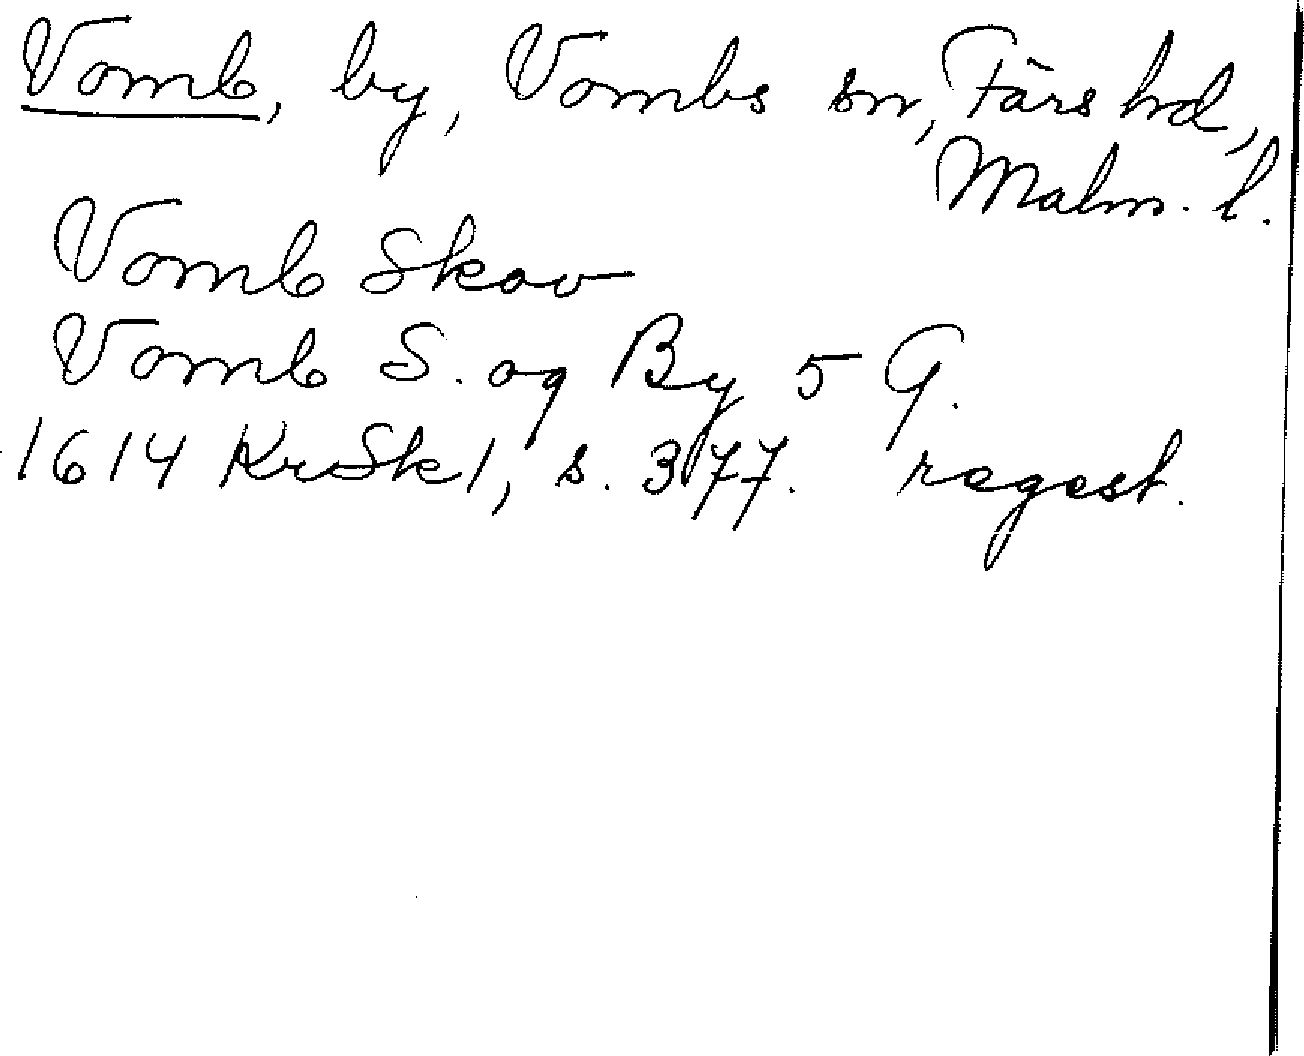 Vomb, by, Vombs sn, Färs hd,
Malm. l.
Vomb Skov
Vomb S. og By 5 G.
1614 KrSk1, s. 377. regest.